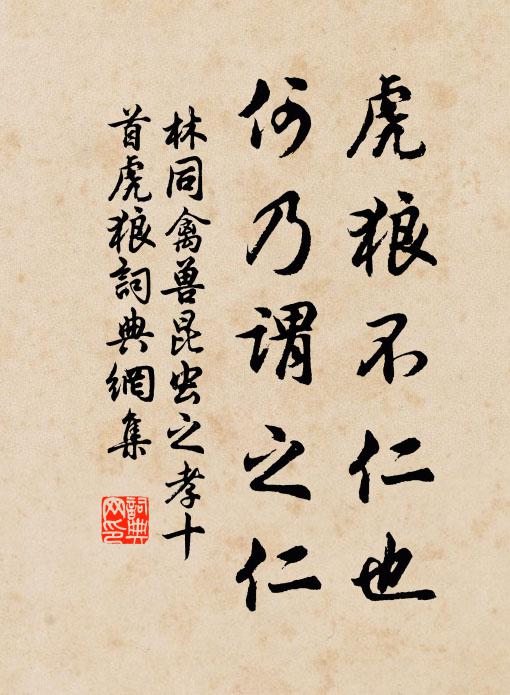 虎狼不仁也
何乃謂之仁
林同禽兽昆虫之孝十
首虎狼詞典網集
詞典
网印